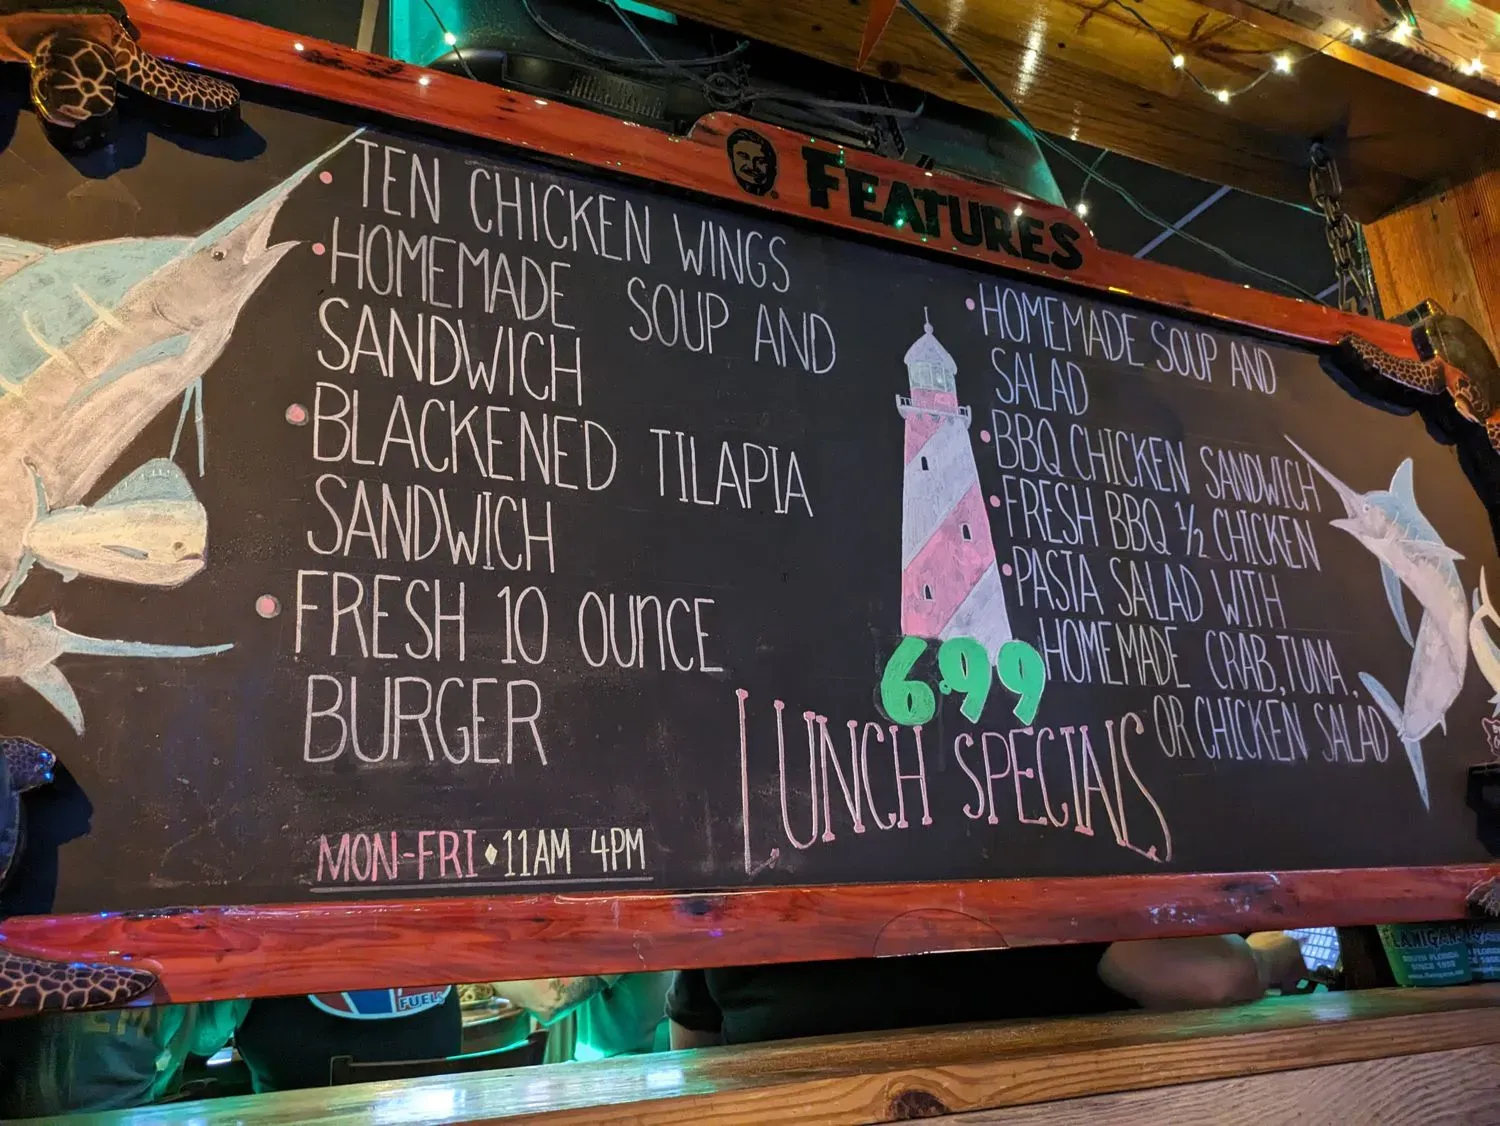 FEATURES
• TEN CHICKEN WINGS
• HOMEMADE SOUP AND
SANDWICH
• BLACKENED TILAPIA
SANDWICH
• FRESH 10 OUNCE
BURGER
MON-FRI • 11AM 4PM
• HOMEMADE SOUP AND
SALAD
• BBQ CHICKEN SANDWICH
• FRESH BBQ ½ CHICKEN
• PASTA SALAD WITH
HOMEMADE CRAB, TUNA,
OR CHICKEN SALAD
6.99
LUNCH SPECIALS
FUELS
FLANIGAN'S
SOUTH FLORIDA
SINCE 1959